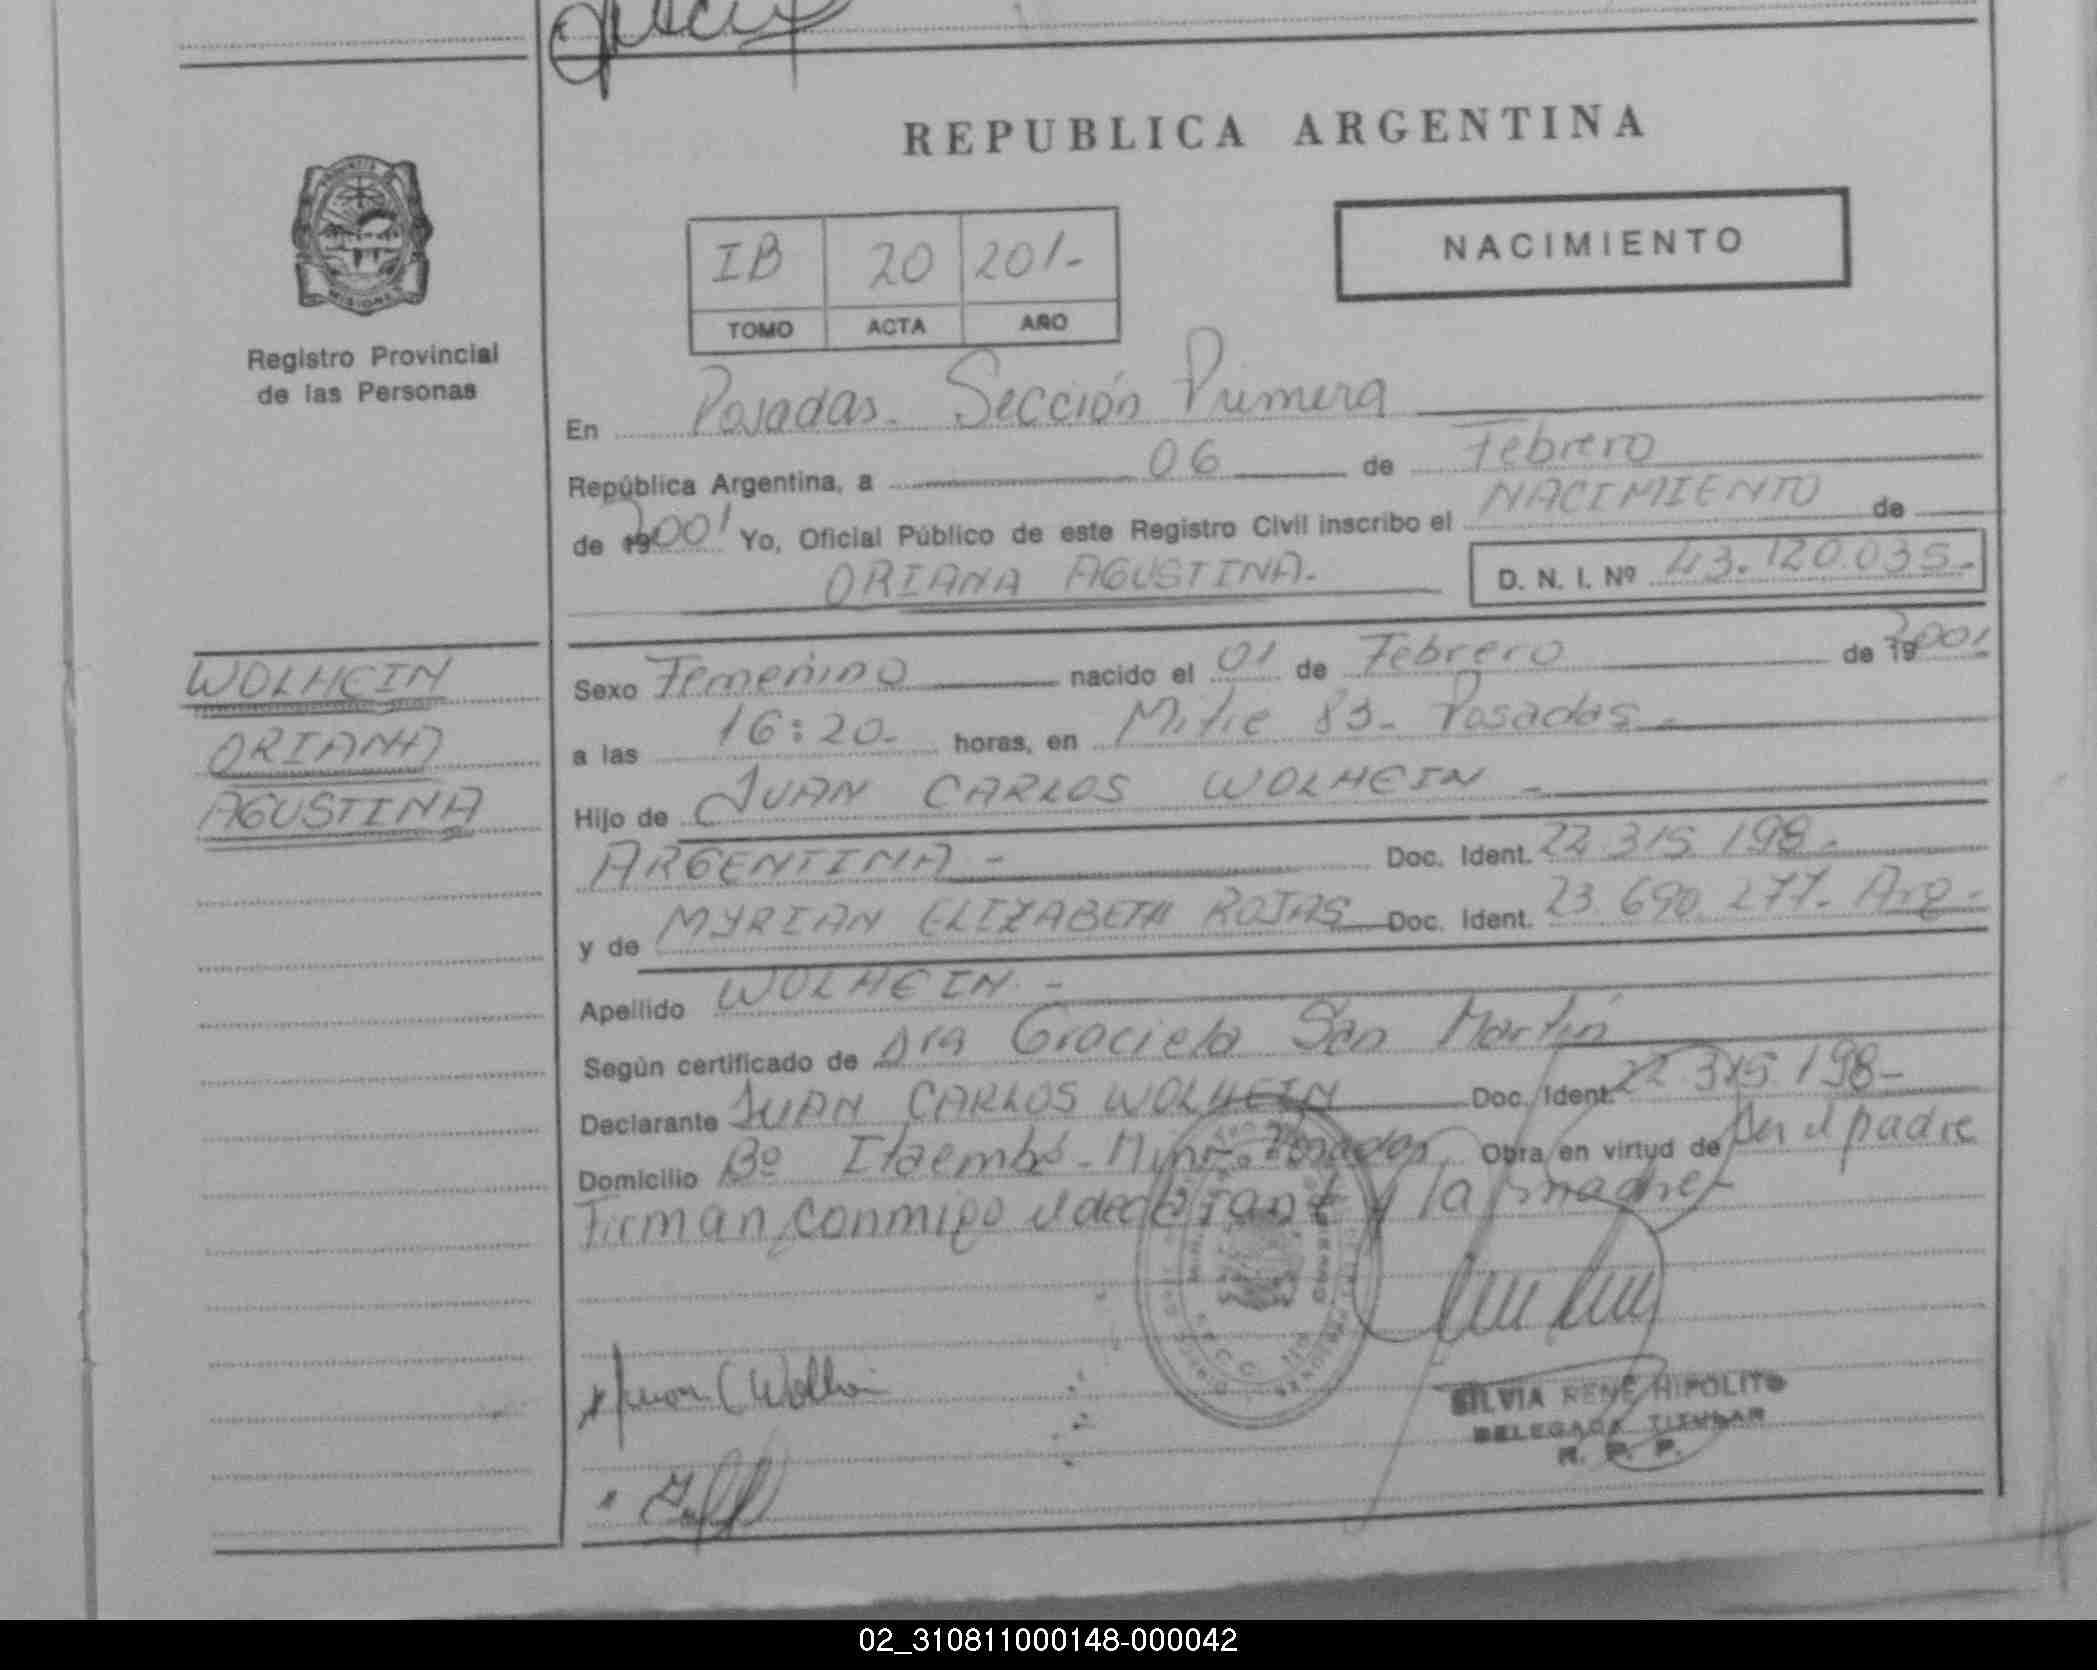 REPUBLICA ARGENTINA
NACIMIENTO
IB 20 201-
TOMO ACTA AÑO
MISIONES
Registro Provincial
de las Personas
En Posadas. Sección Primera
República Argentina, a 06 de Febrero
de 2001 Yo, Oficial Público de este Registro Civil inscribo el NACIMIENTO de
ORIANA AGUSTINA.
D. N. I. Nº 43.120.035.-
WOLHEIN
ORIANA
AGUSTINA
Sexo Femenino nacido el 01 de Febrero de 192001
a las 16:20- horas, en Mitre 83- Posadas-
Hijo de JUAN CARLOS WOLHEIN -
ARGENTINA - Doc. Ident. 22.315.198-
y de MYRIAN ELIZABETH ROJAS Doc. Ident. 23.690.277- Arg-
Apellido WOLHEIN. -
Según certificado de Dra Graciela San Martín
Declarante JUAN CARLOS WOLHEIN Doc. Ident. 22.315.198-
Domicilio Bº Itaembé-Miní-Posadas Obra en virtud de Ser el padre
Firman conmigo el declarante y la madre
Juan C Wolhein
SILVIA RENE HIPOLITO
DELEGADA TITULAR
R. P. P.
02_310811000148-000042